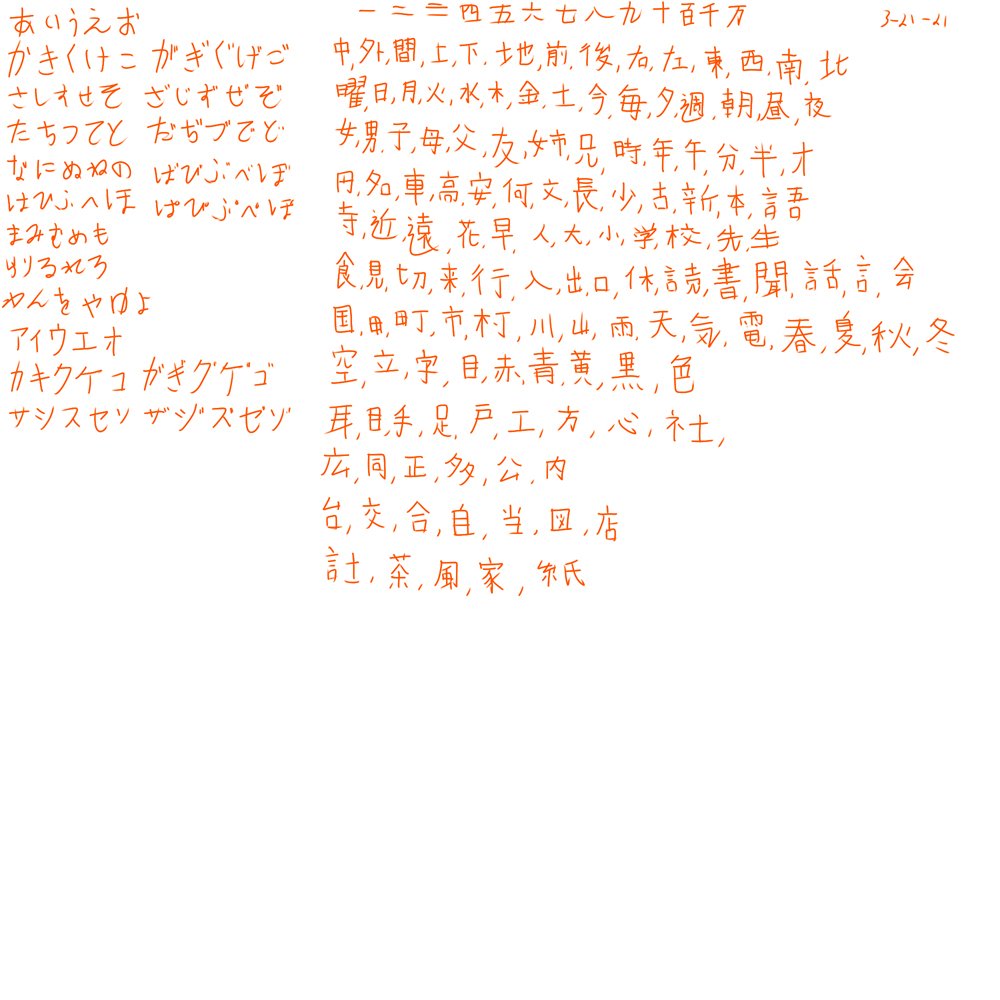 あいうえお
かきくけこ がぎぐげご
さしすせそ ざじずぜぞ
たちつてと だぢづでど
なにぬねの ばびぶべぼ
はひふへほ ぱぴぷぺぽ
まみむめも
りるれろ
わんをやゆよ
アイウエオ
カキクケコ がぎグゲゴ
サシスセソ ザジズゼゾ
一二三四五六七八九十百千万 3-21-21
中,外,間,上,下,地,前,後,右,左,東,西,南,北
曜,日,月,火,水,木,金,土,今,毎,夕,週,朝,昼,夜
女,男,子,母,父,友,姉,兄,時,年,午,分,半,才
円,名,車,高,安,何,文,長,少,古,新,本,語
寺,近,遠,花,早,人,大,小,学,校,先,生
食,見,切,来,行,入,出,口,休,読,書,聞,話,言,会
国,田,町,市,村,川,山,雨,天,気,電,春,夏,秋,冬
空,立,字,目,赤,青,黄,黒,色
耳,目,手,足,戸,工,方,心,社,
広,同,正,多,公,内
台,交,合,自,当,図,店
計,茶,風,家,紙